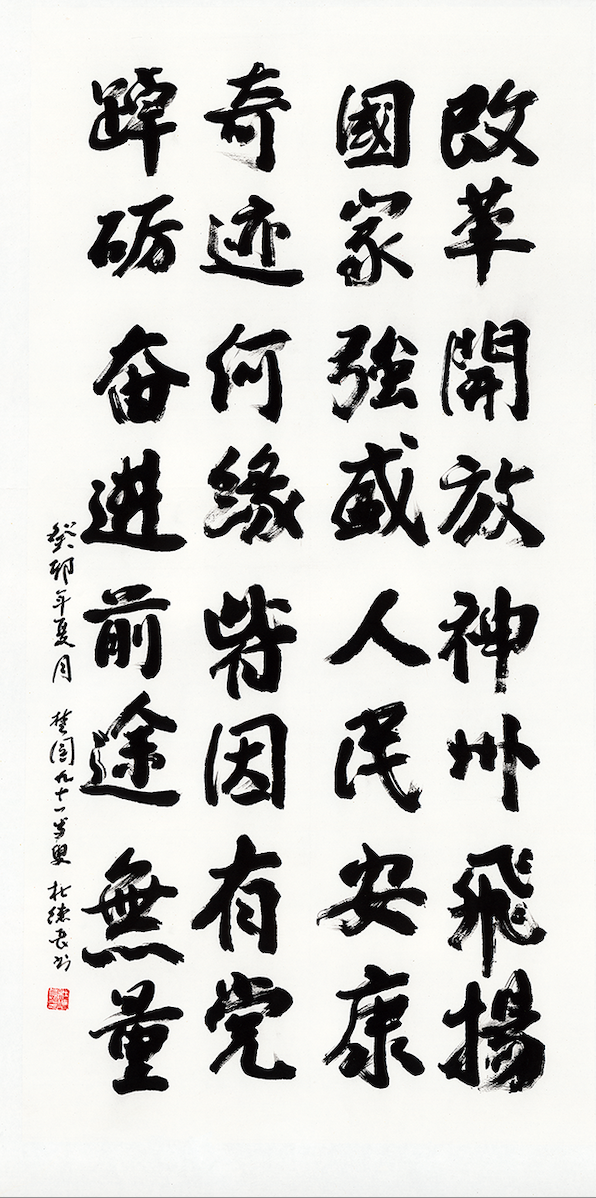 改革開放神州飛揚
國家強盛人民安康
奇迹何緣皆因有党
踔砺奋進前途無量
癸卯年夏月 楚園九十一岁叟 杜德書